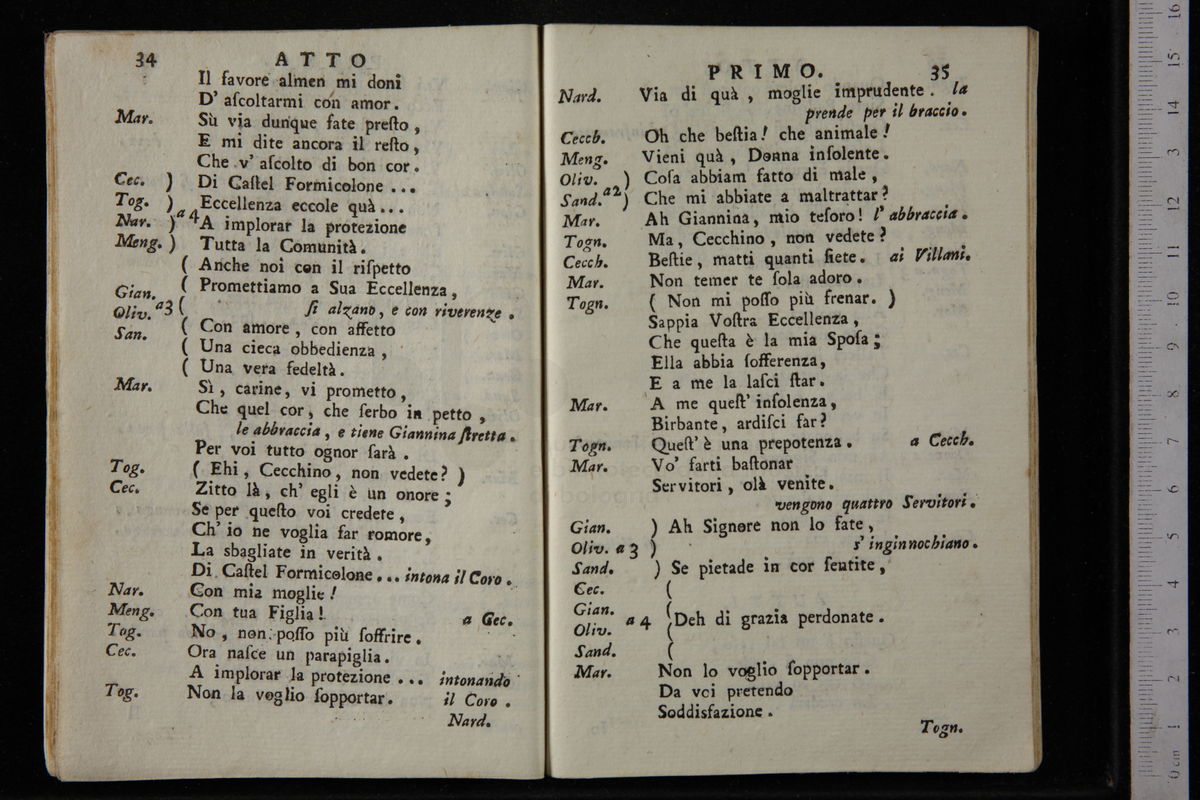 34 ATTO
Il favore almen mi doni
D' aſcoltarmi con amor.
Mar. Sù via dunque fate preſto,
E mi dite ancora il reſto,
Che v' aſcolto di bon cor.
Cec. ) Di Caſtel Formicolone ...
Tog. ) Eccellenza eccole quà...
Nar. ) a 4 A implorar la protezione
Meng. ) Tutta la Comunità.
( Anche noi con il riſpetto
Gian. ( Promettiamo a Sua Eccellenza,
Oliv. a3 ( ſi alzano, e con riverenze.
San. ( Con amore, con affetto
( Una cieca obbedienza,
( Una vera fedeltà.
Mar. Sì, carine, vi prometto,
Che quel cor, che ſerbo in petto,
le abbraccia, e tiene Giannina ſtretta.
Per voi tutto ognor ſarà.
Tog. ( Ehi, Cecchino, non vedete? )
Cec. Zitto là, ch' egli è un onore;
Se per queſto voi credete,
Ch' io ne voglia far romore,
La sbagliate in verità.
Di Caſtel Formicolone... intona il Coro.
Nar. Con mia moglie!
Meng. Con tua Figlia! a Cec.
Tog. No, non poſſo più ſoffrire.
Cec. Ora naſce un parapiglia.
A implorar la protezione ... intonando
Tog. Non la voglio ſopportar. il Coro.
Nard.
PRIMO. 35
Nard. Via di quà, moglie imprudente. la
prende per il braccio.
Cecch. Oh che beſtia! che animale!
Meng. Vieni quà, Donna inſolente.
Oliv. ) Coſa abbiam fatto di male,
Sand. a2 ) Che mi abbiate a maltrattar?
Mar. Ah Giannina, mio teſoro! l' abbraccia.
Togn. Ma, Cecchino, non vedete?
Cecch. Beſtie, matti quanti ſiete. ai Villani.
Mar. Non temer te ſola adoro.
Togn. ( Non mi poſſo più frenar. )
Sappia Voſtra Eccellenza,
Che queſta è la mia Spoſa;
Ella abbia ſofferenza,
E a me la laſci ſtar.
Mar. A me queſt' inſolenza,
Birbante, ardiſci far?
Togn. Queſt' è una prepotenza. a Cecch.
Mar. Vo' farti baſtonar
Servitori, olà venite.
vengono quattro Servitori.
Gian. ) Ah Signore non lo fate,
Oliv. a 3 ) s' inginnochiano.
Sand. ) Se pietade in cor ſentite,
Cec. (
Gian. (
Oliv. a 4 ( Deh di grazia perdonate.
Sand. (
Mar. Non lo voglio ſopportar.
Da voi pretendo
Soddisfazione.
Togn.